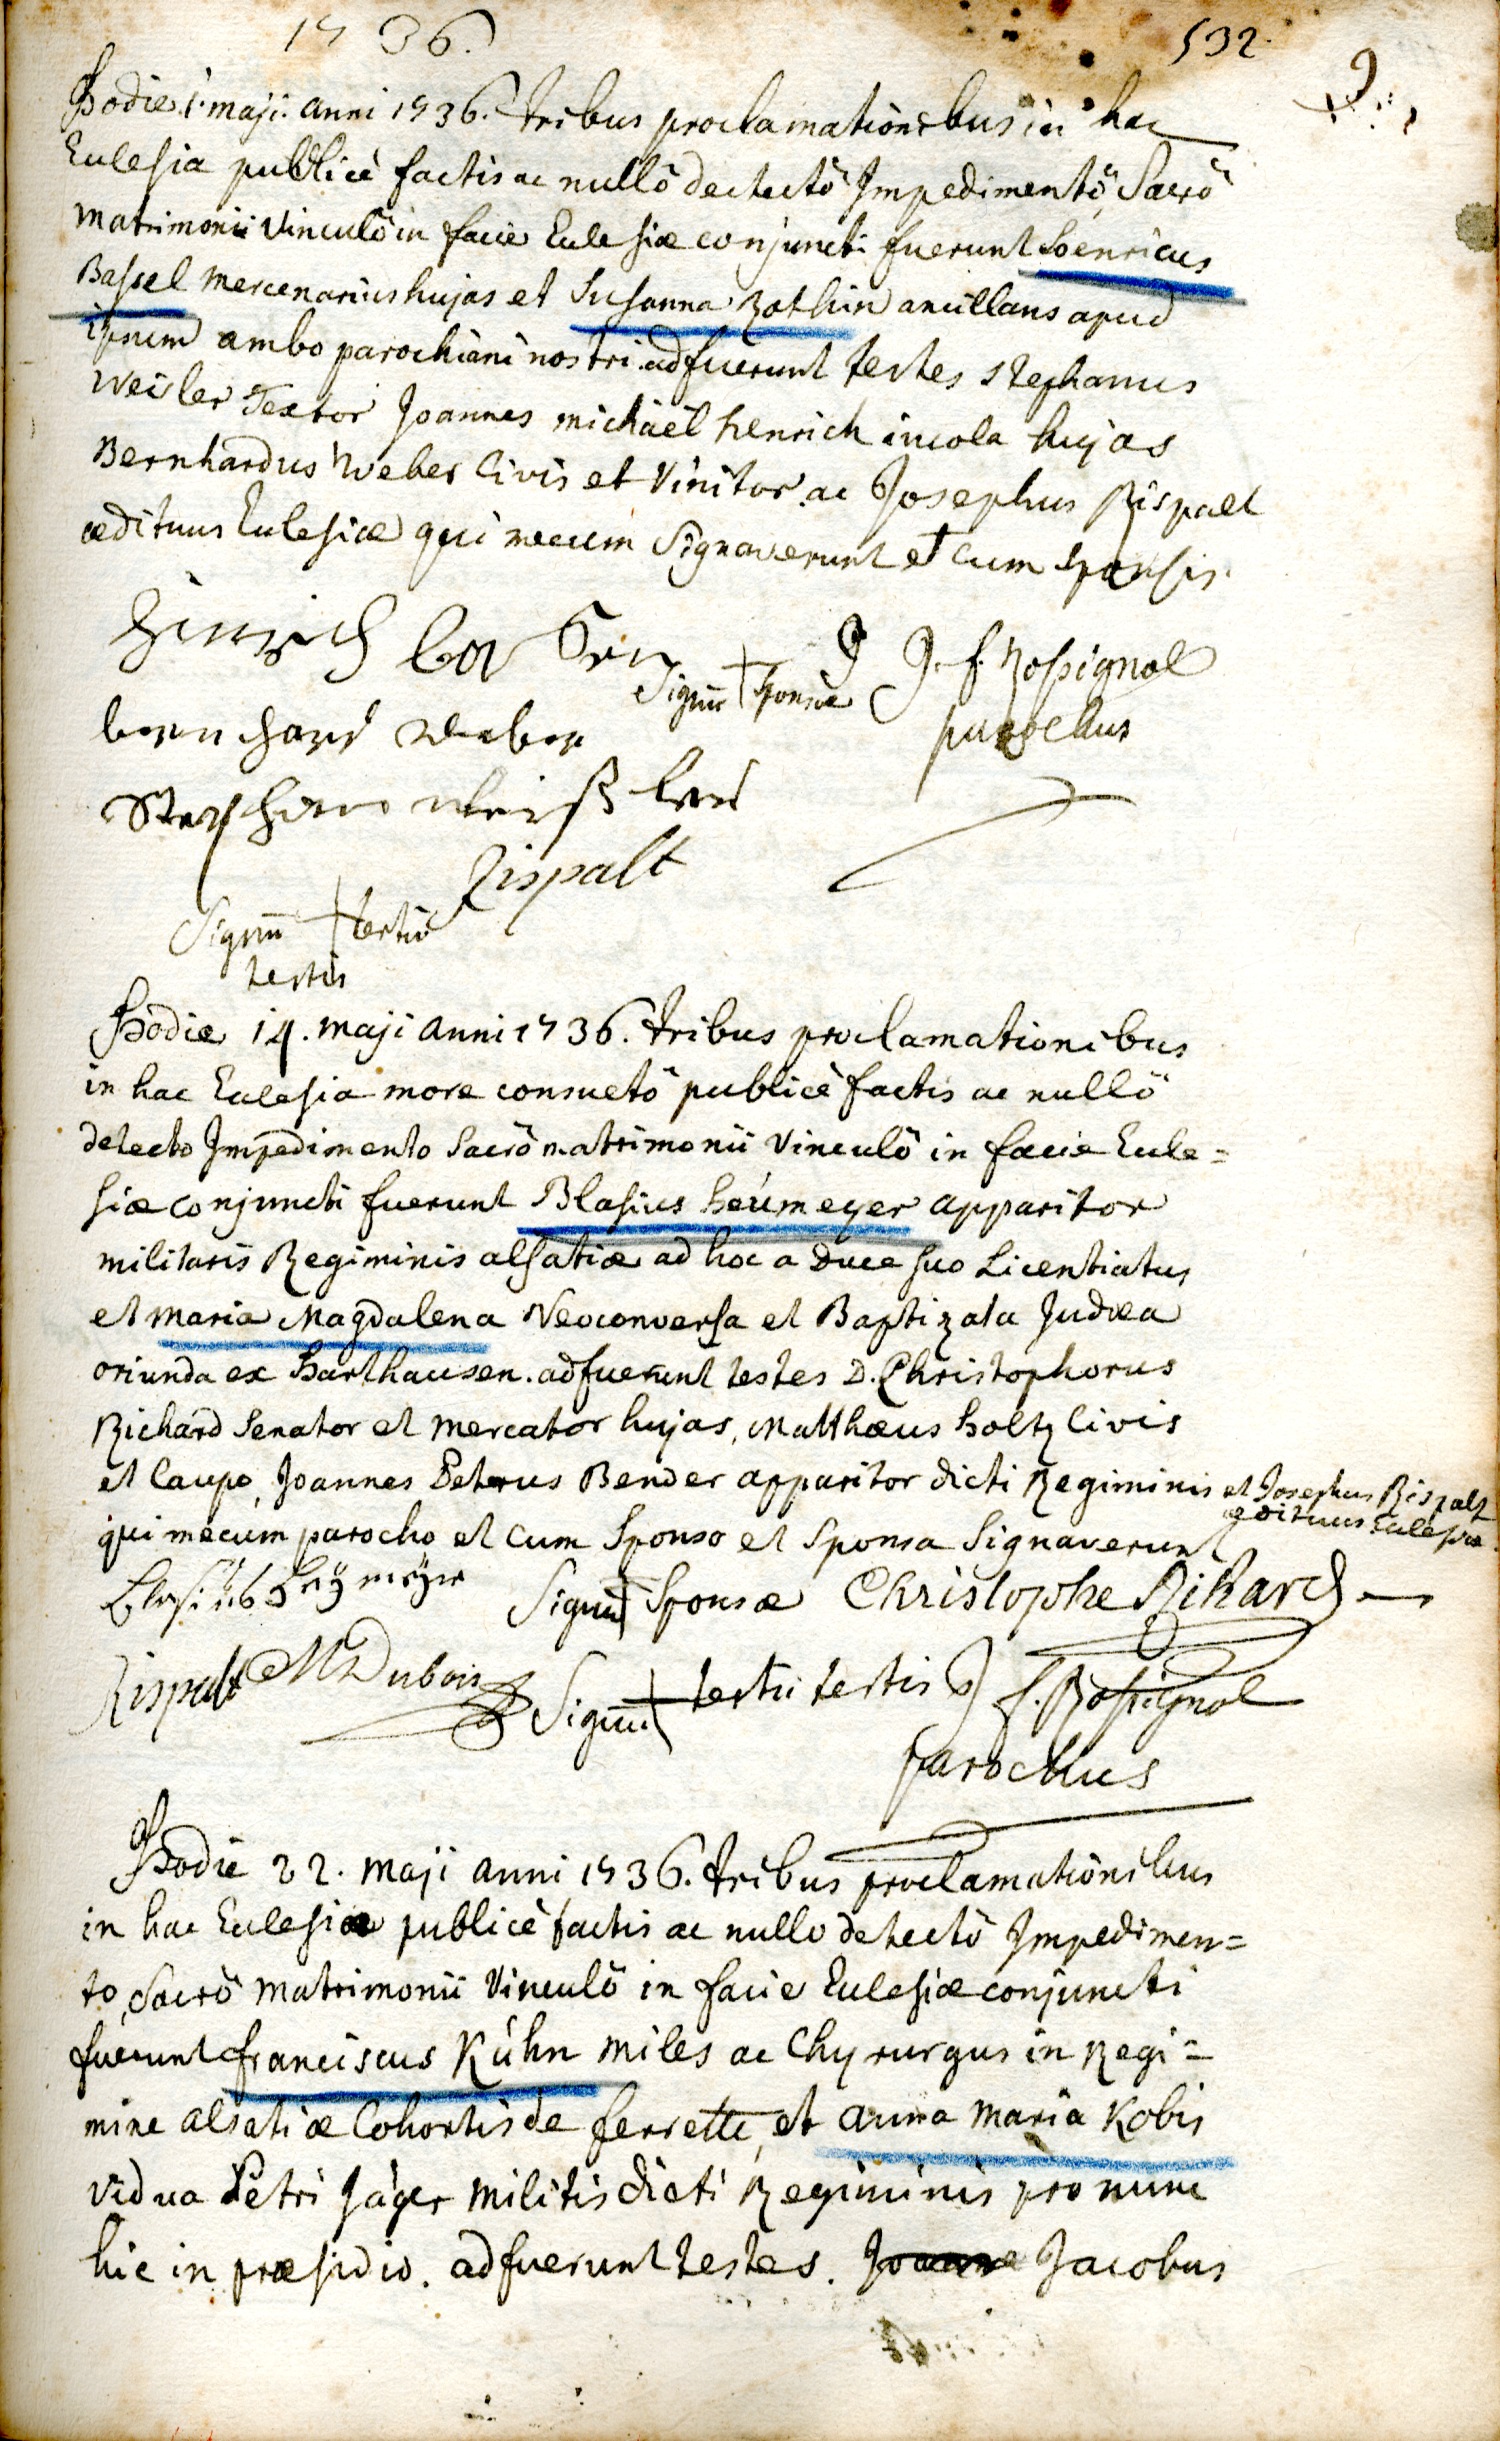 1736.
532.
Hodie 1. maji. anni 1736. tribus proclamationibus in hac
Eclesia publicè factis ac nullô dectectô Impedimentô, Sacrô
matrimonii Vinculô in facie Eclesiæ conjuncti fuerunt Hoenricus
Bassel mercenarius hujas et Susanna Rothin ancillans apud
ipsum ambo parochiani nostri. adfuerunt testes Stephanus
Weisler Textor Joannes michaël henrich incola hujas
Bernhardus Weber Civis et Vinitor ac Josephus Rispalt
ædituus Eclesiæ qui mecum Signaverunt et cum Sponsis.
Heinrich
Signū + Sponsæ
J. f. Rossignol
parochus
bernhard weber
Stephan weißler
Rispalt
Signū + tertii
testis
Hodie 14. maji anni 1736. tribus proclamationibus
in hac Eclesia more consuetô publicè factis ac nullô
detecto Impedimento Sacrô matrimonii Vinculô in facie Ecle=
siæ conjuncti fuerunt Blasius heümeyer apparitor
militaris Regiminis alsatiæ ad hoc a Duce suo Licentiatus
et maria Magdalena Neoconversa et Baptizata Judæa
oriunda ex Harthausen. adfuerunt testes D. Christophorus
Richard Senator et mercator hujas, Matthæus Holtz Civis
et Caupo, Joannes Peterus Bender apparitor dicti Regiminis et Josephus Rispalt
ædituus Eclesiæ.
qui mecum parocho et cum Sponso et Sponsa Signaverunt
Blasius Heÿmeÿer
Signū + Sponsæ
Christophe Rikard
Rispalt
MDubois
Signū + tertii testis
J f. Rossignol
parochus
Hodie 22. maji anni 1736. tribus proclamationibus
in hac Eclesia publicè factis ac nullo detectô Impedimen=
to, Sacrô matrimonii Vinculô in facie Eclesiæ conjuncti
fuerunt franciscus Kühn miles ac Chyrurgus in Regi=
mine alsatiæ Cohortis de ferrette, et anna maria Kobis
vidua Petri Jäger militis dicti Regiminis pro nunc
hic in præsidio. adfuerunt testes. Jacobus